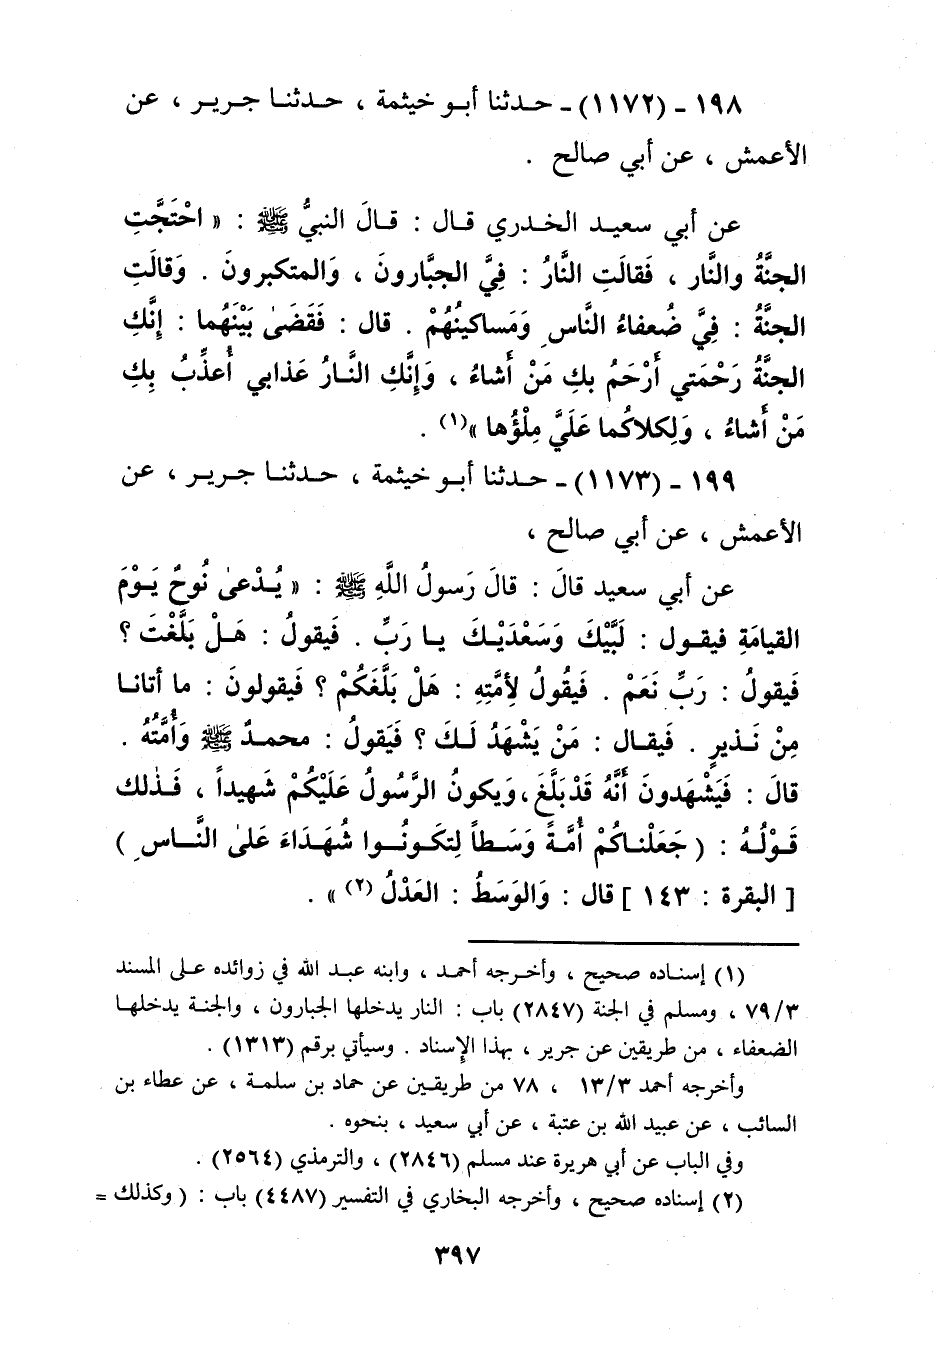 ١٩٨ - (١١٧٢) - حدثنا أبو خيثمة ، حدثنا جرير ، عن
الأعمش ، عن أبي صالح .
عن أبي سعيد الخدري قال : قالَ النبيُّ ﷺ : « احْتَجَّتِ
الجنَّةُ والنَّار ، فَقالَتِ النَّارُ : فِيَّ الجبَّارونَ ، وَالمتكبرونَ . وَقالَتِ
الجنَّةُ : فِيَّ ضُعفاءُ النَّاسِ وَمَساكينُهُمْ . قال : فَقَضَىٰ بَيْنَهُما : إِنَّكِ
الجنَّةُ رَحْمَتي أَرْحَمُ بكِ مَنْ أَشاءُ ، وَإِنَّكِ النَّارُ عَذابي أُعذِّبُ بِكِ
مَنْ أَشاءُ ، وَلِكلاكُما عَلَيَّ مِلْؤُها »(١) .
١٩٩ - (١١٧٣) - حدثنا أبو خيثمة ، حدثنا جرير ، عن
الأعمش ، عن أبي صالح ،
عن أبي سعيد قالَ : قالَ رَسولُ اللَّهِ ﷺ : « يُدْعىٰ نُوحٌ يَوْمَ
القيامَةِ فيقول : لَبَّيْكَ وَسَعْدَيْكَ يا رَبِّ . فَيقولُ : هَلْ بَلَّغْتَ ؟
فَيقولُ : رَبِّ نَعَمْ . فَيقُولُ لأمَّتِهِ : هَلْ بَلَّغَكُمْ ؟ فَيقولونَ : ما أتانا
مِنْ نَذيرٍ . فَيقال : مَنْ يَشْهَدُ لَكَ ؟ فَيَقولُ : محمدٌ ﷺ وَأُمَّتُهُ .
قالَ : فَيَشْهَدونَ أَنَّهُ قَدْ بَلَّغَ ، وَيكونُ الرَّسُولُ عَلَيْكُمْ شَهيداً ، فَذٰلك
قَوْلُهُ : ( جَعَلْناكُمْ أُمَّةً وَسَطاً لِتكَونُوا شُهَدَاءَ عَلىٰ النَّاسِ )
[ البقرة : ١٤٣ ] قال : وَالوَسَطُ : العَدْلُ (٢) » .
(١) إسناده صحيح ، وأخرجه أحمد ، وابنه عبد الله في زوائده على المسند
٧٩/٣ ، ومسلم في الجنة (٢٨٤٧) باب : النار يدخلها الجبارون ، والجنة يدخلها
الضعفاء ، من طريقين عن جرير ، بهذا الإسناد . وسيأتي برقم (١٣١٣) .
وأخرجه أحمد ١٣/٣ ، ٧٨ من طريقين عن حماد بن سلمة ، عن عطاء بن
السائب ، عن عبيد الله بن عتبة ، عن أبي سعيد ، بنحوه .
وفي الباب عن أبي هريرة عند مسلم (٢٨٤٦) ، والترمذي (٢٥٦٤) .
(٢) إسناده صحيح ، وأخرجه البخاري في التفسير (٤٤٨٧) باب : ( وكذلك =
٣٩٧